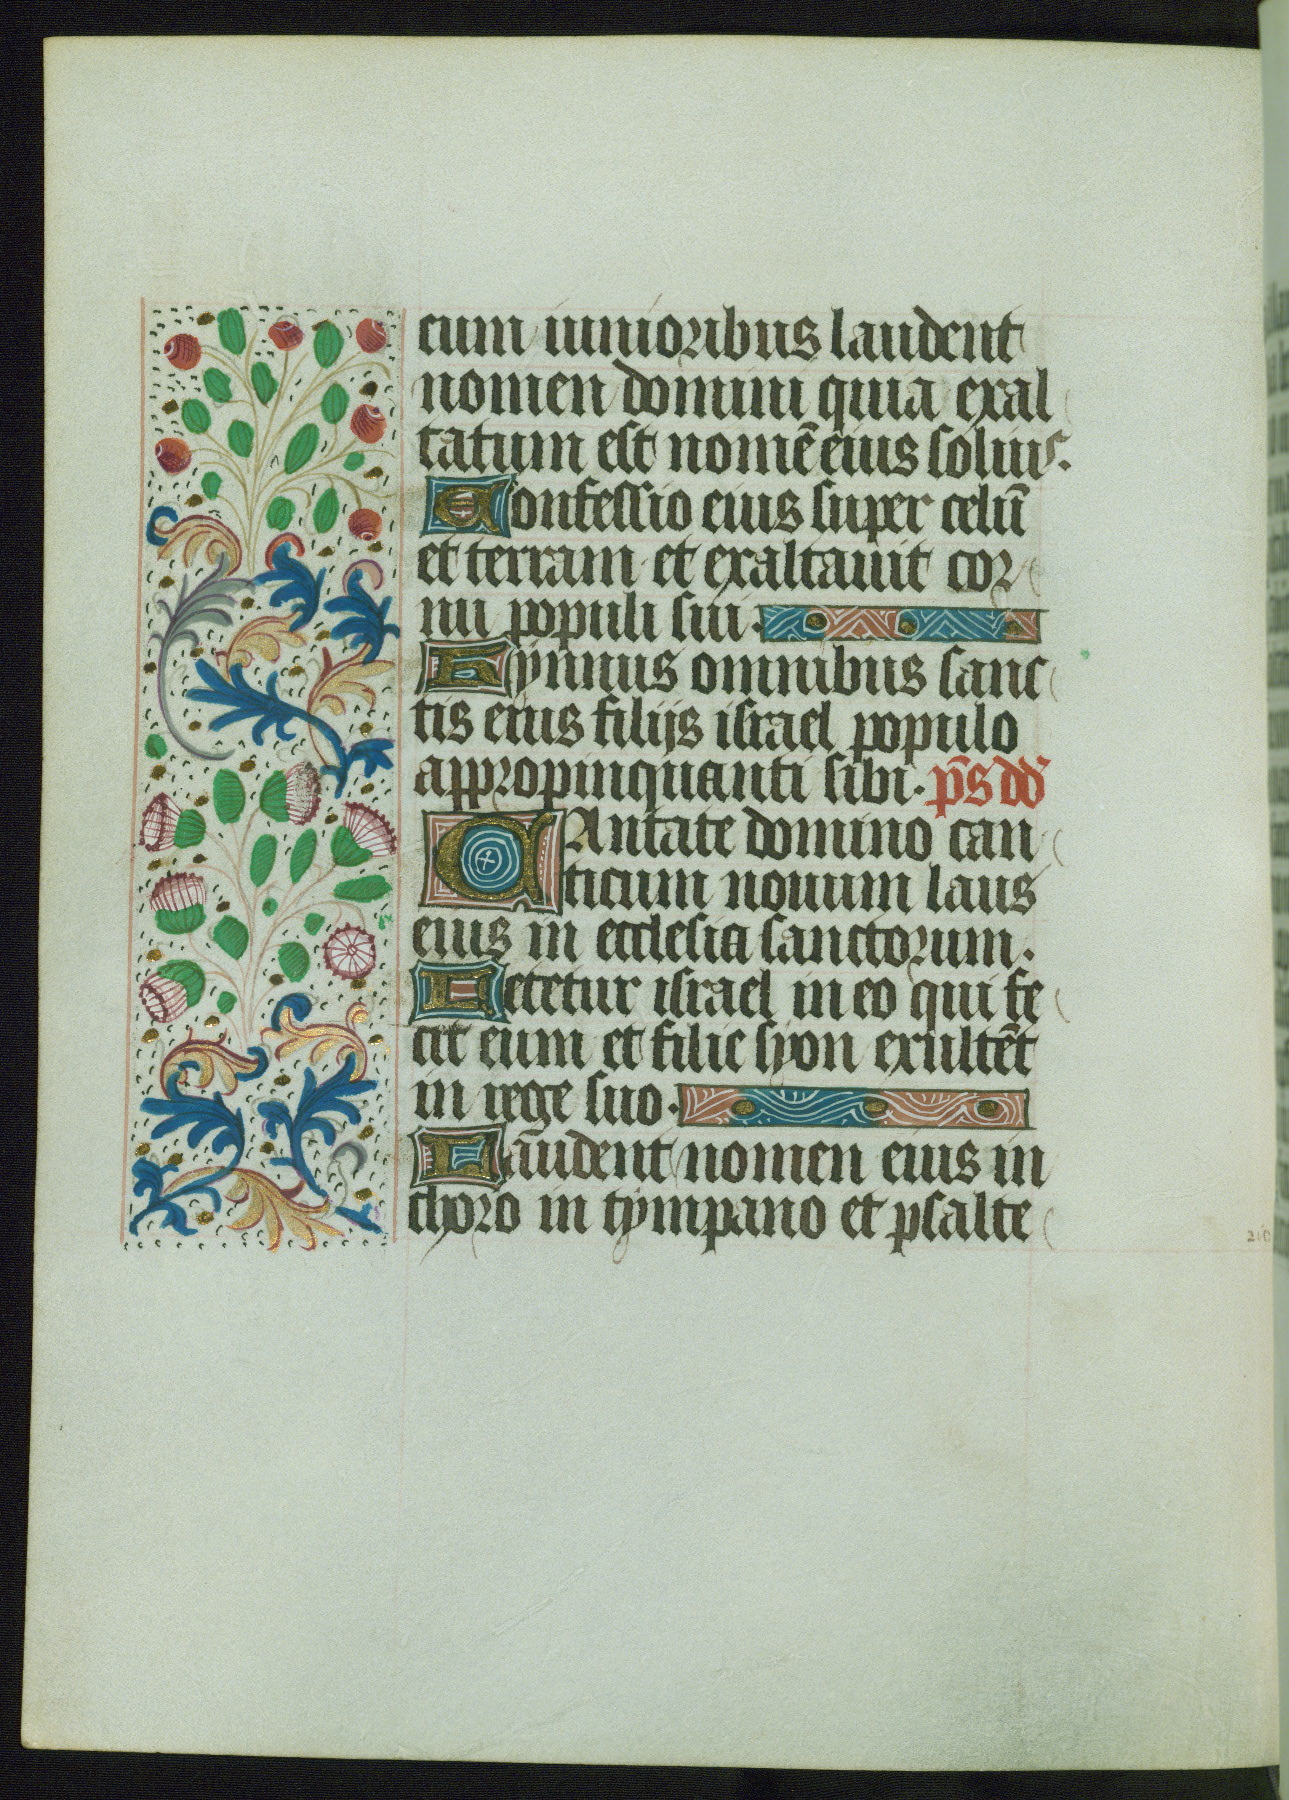 cum iunioribus laudent
nomen domini quia exal
tatum est nomē eius solius.
Confessio eius super celū
et terram et exaltauit cor
nu populi sui.
Hymnus omnibus sanc
tis eius filijs israel populo
appropinquanti sibi. p̄s dd̄
CAntate domino can
ticum nouum laus
eius in ecclesia sanctorum.
Letetur israel in eo qui fe
cit eum et filie syon exultēt
in rege suo.
Laudent nomen eius in
choro in tympano et psalte